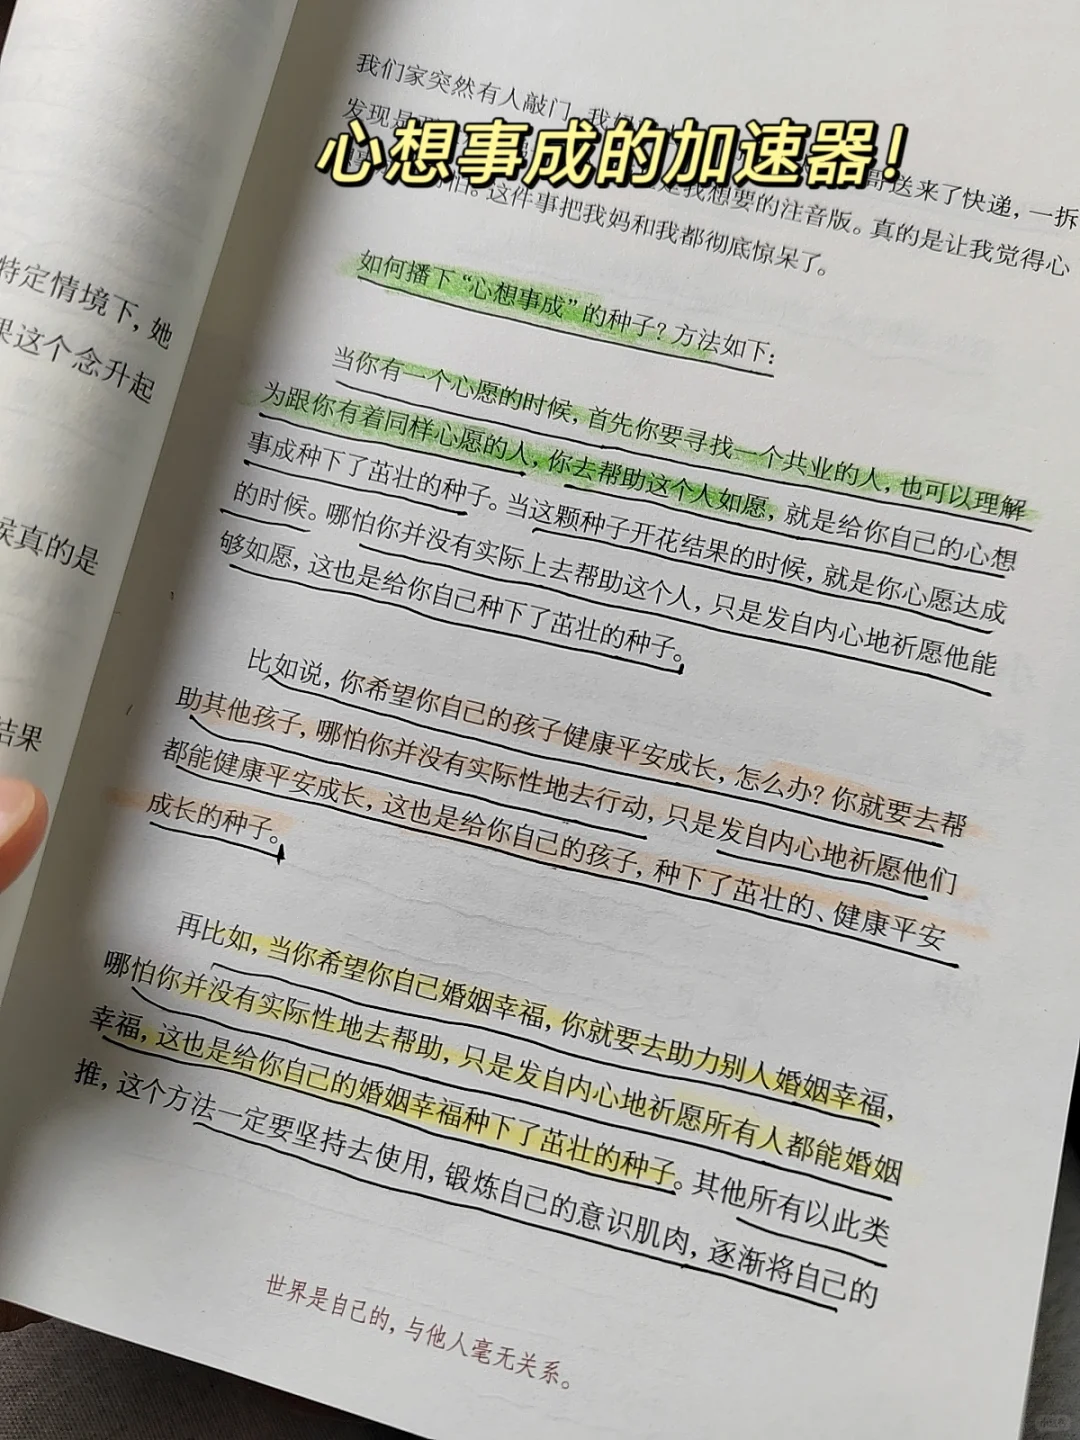 心想事成的加速器!
我们家突然有人敲门
发现是
哥送来了快递，一拆
是我想要的注音版。真的是让我觉得心
。这件事把我妈和我都彻底惊呆了。
特定情境下，她
果这个念升起
候真的是
结果
如何播下“心想事成”的种子？方法如下：
当你有一个心愿的时候，首先你要寻找一个共业的人，也可以理解
为跟你有着同样心愿的人，你去帮助这个人如愿，就是给你自己的心想
事成种下了茁壮的种子。当这颗种子开花结果的时候，就是你心愿达成
的时候。哪怕你并没有实际上去帮助这个人，只是发自内心地祈愿他能
够如愿，这也是给你自己种下了茁壮的种子。
比如说，你希望你自己的孩子健康平安成长，怎么办？你就要去帮
助其他孩子，哪怕你并没有实际性地去行动，只是发自内心地祈愿他们
都能健康平安成长，这也是给你自己的孩子，种下了茁壮的、健康平安
成长的种子。
再比如，当你希望你自己婚姻幸福，你就要去助力别人婚姻幸福，
哪怕你并没有实际性地去帮助，只是发自内心地祈愿所有人都能婚姻
幸福，这也是给你自己的婚姻幸福种下了茁壮的种子。其他所有以此类
推，这个方法一定要坚持去使用，锻炼自己的意识肌肉，逐渐将自己的
世界是自己的，与他人毫无关系。